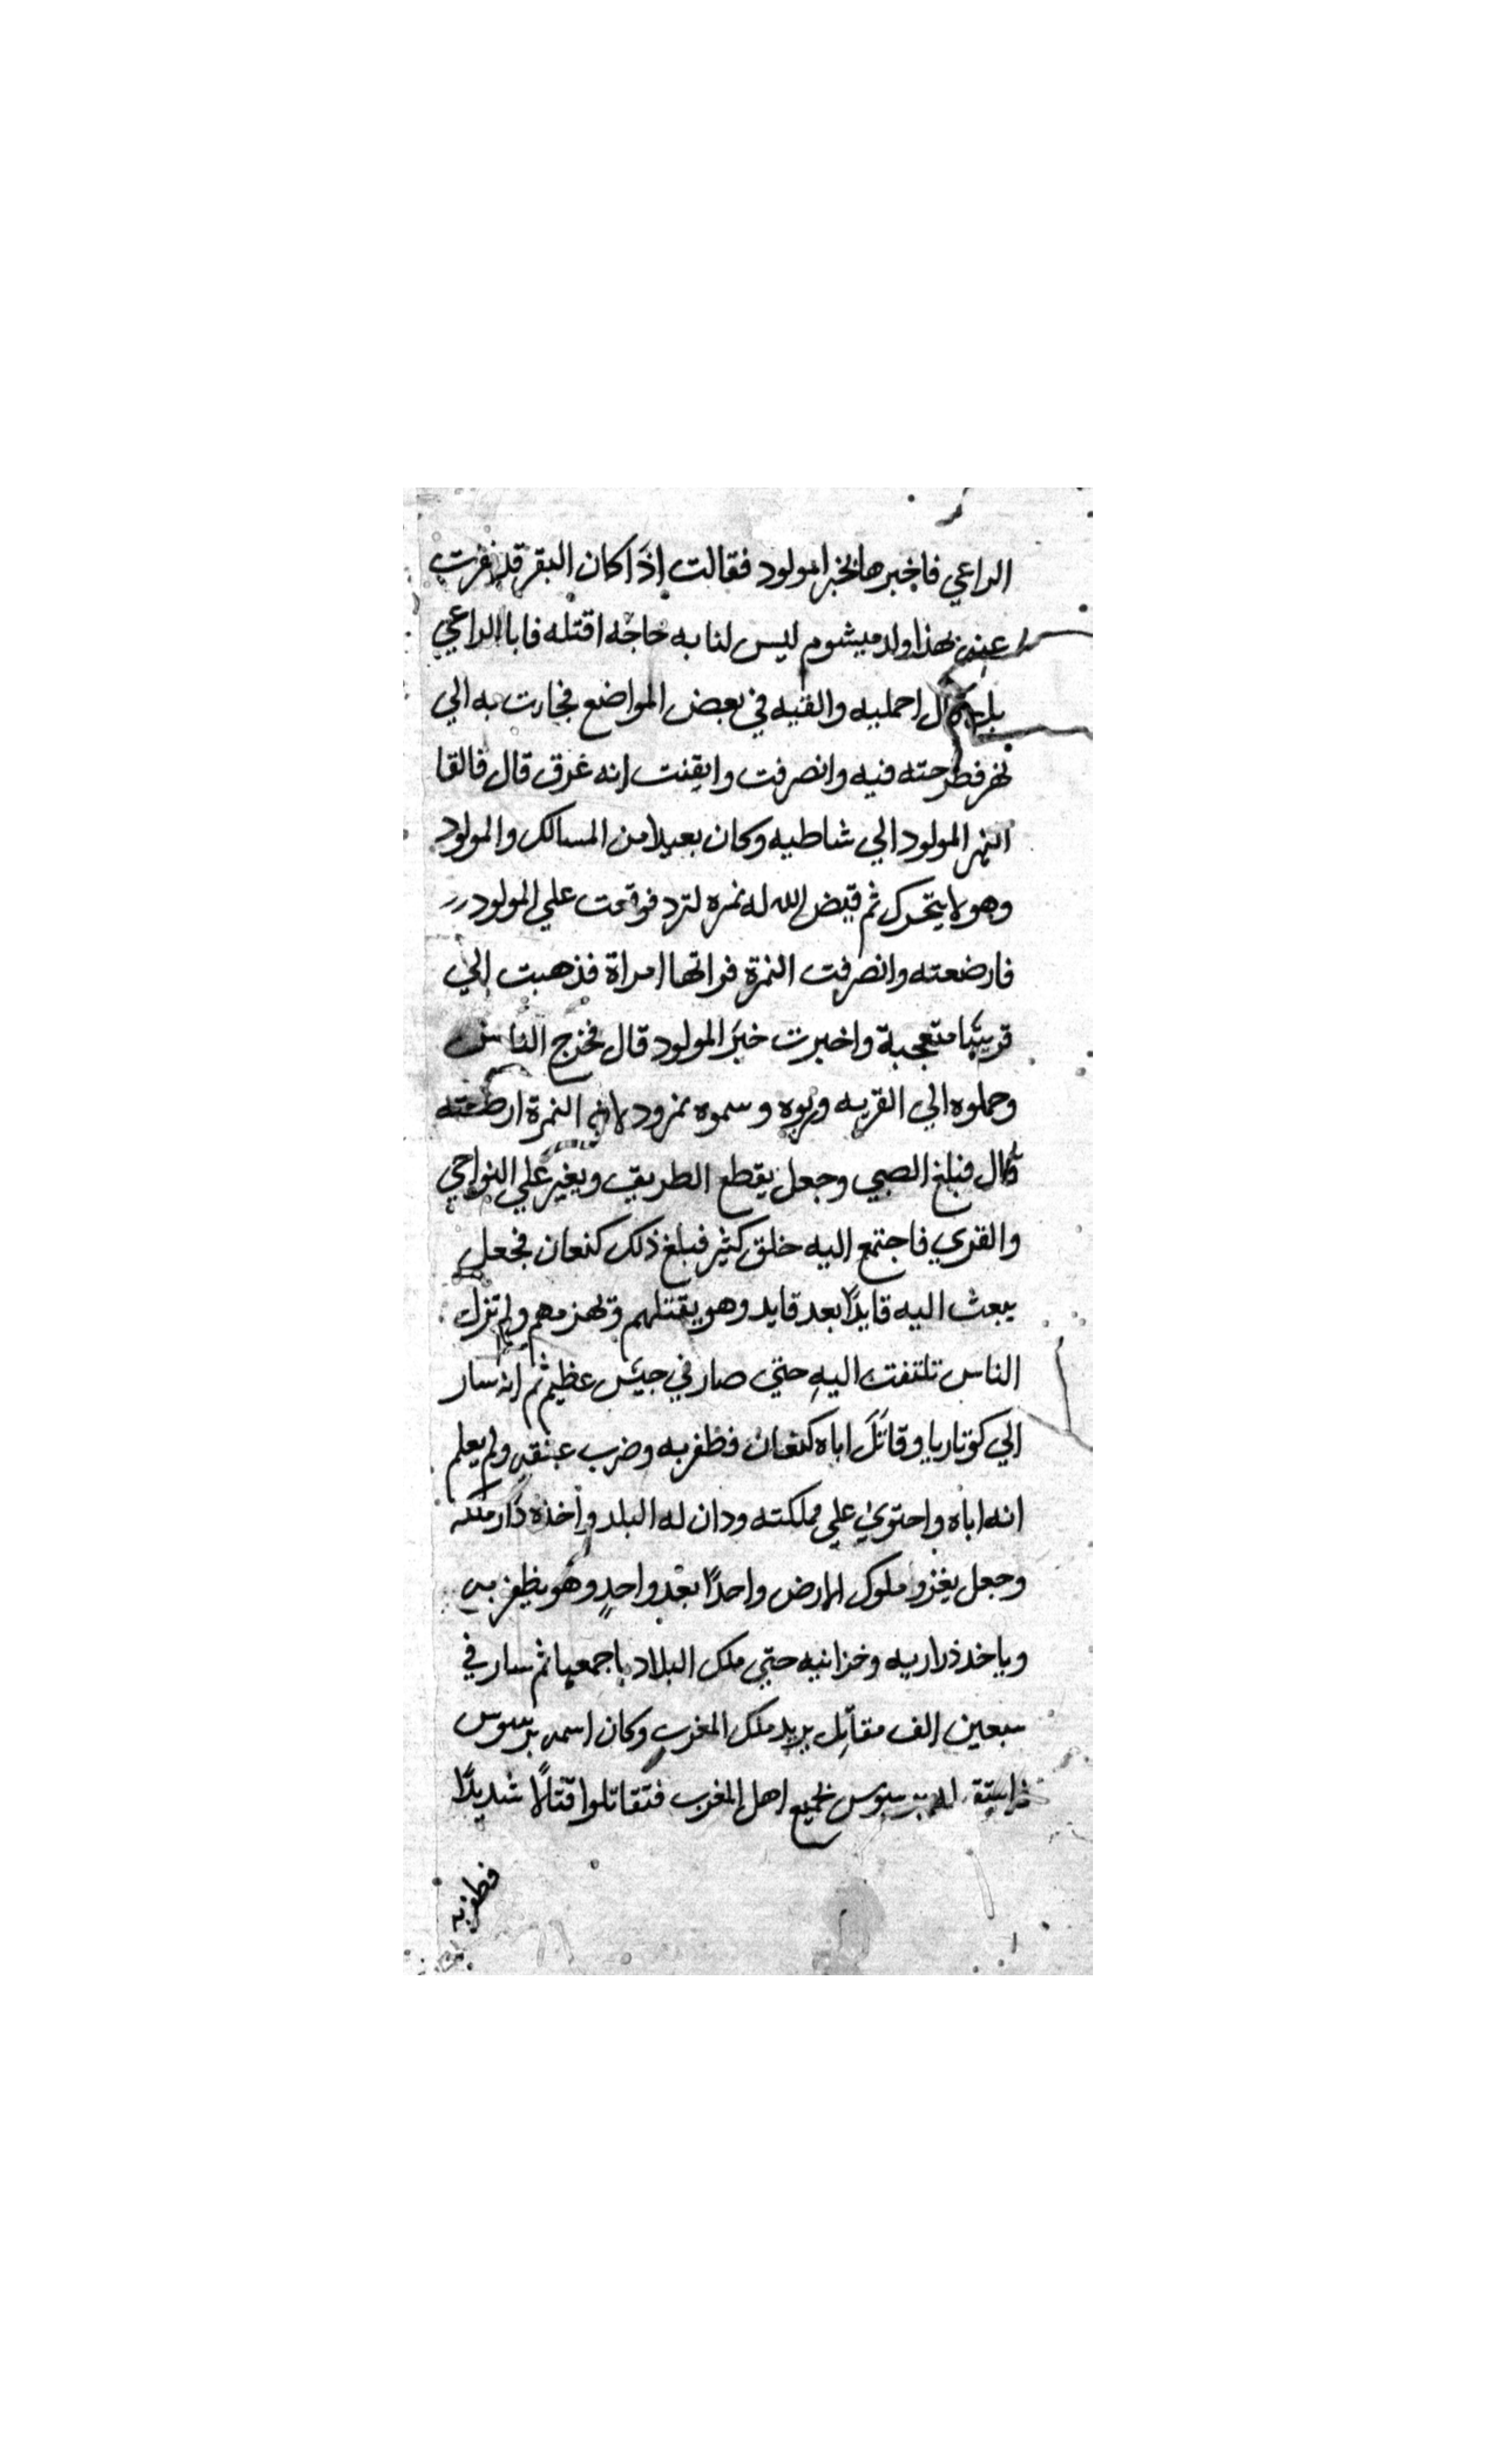 الراعي فاخبرها بخبر المولود فقالت اذَا كان البقر قد نفرت
عنه فهذا ولد ميشوم ليس لنا به حاجه اقتله فابا الراعي
بل قال احمليه والقيه في بعض المواضع فجارت به الي
نهر فطرحته فيه وانصرفت وايقنت انه غرق قال فالقا
النهر المولود الي شاطيه وكان بعيدا من المسالك والمولود
وهو لا يتحرك ثم قيض الله له نمره لترد فوقعت علي المولود
فارضعته وانصرفت النمرة فراتها امراة فذهبت الي
قريتها متعجبة واخبرت خبرَ المولود قال فخرج الناس
وحملوه الي القريه وربوه وسموه نمرود لان النمرة ارضعته
قال فبلغ الصبي وجعل يقطع الطريق ويغير علي النواحي
والقري فاجتمع اليه خلق كثير فبلغ ذلك كنعان فجعل
يبعث اليه قايدًا بعد قايد وهو يقتلهم ويهزمهم ولم تزل
الناس تلتفت اليهِ حتي صار في جيش عظيم ثم انه سار
الي كوتاريا وقاتَلَ اباه كنعان فظفر به وضرب عنقه ولم يعلم
انه اباه واحتوي علي مملكته ودان له البلد واخذه دَار ملكه
وجعل يغزو ملوك الارض واحدًا بعد واحدٍ وهو يظفر بهم
وياخد ذراريه وخزانيه حتي ملك البلاد باجمعها ثم سار في
سبعين الف مقاتِل يريد ملك المغرب وكان اسمه برسوس
برسوس بجميع اهل المغرب فتقاتلوا قتالًا شديدًا
فظفر به